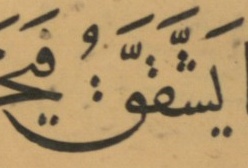 ا يَشَّقَّقُ فَيَخَ